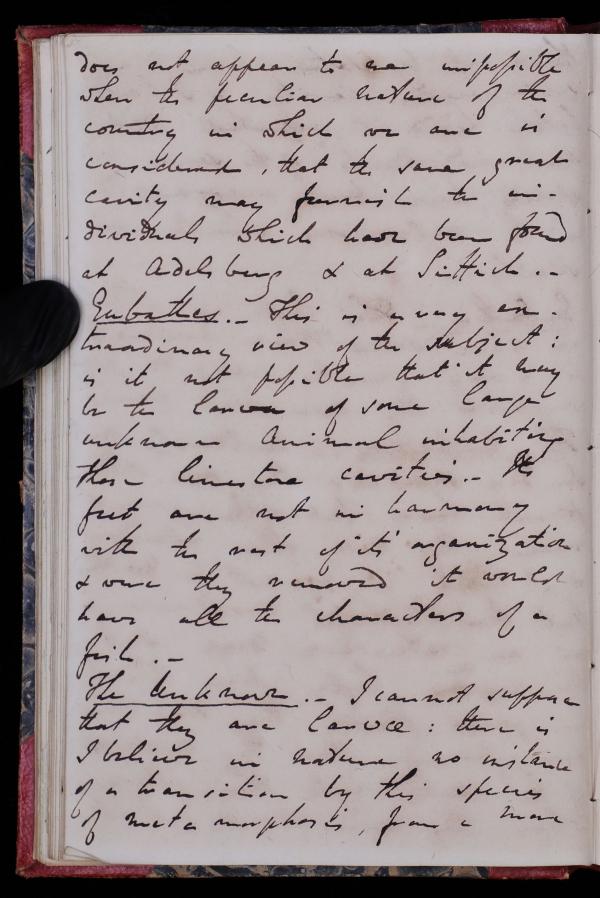 does not appear to me impossible
when the peculiar nature of the
country in which we are is
considered, that the same great
cavity may furnish the in-
dividuals which have been found
at Adelsberg & at Sittich. -
Eubathes. - This is a very ex-
traordinary view of the subject:
is it not possible that it may
be the larva of some large
unknown animal inhabiting
these limestone cavities. - Its
feet are not in harmony
with the rest of its organization
& were they removed it would
have all the characters of a
fish. -
The Unknown. - I cannot suppose
that they are larvae: there is
I believe in nature no instance
of a transition by this species
of metamorphosis, from a more